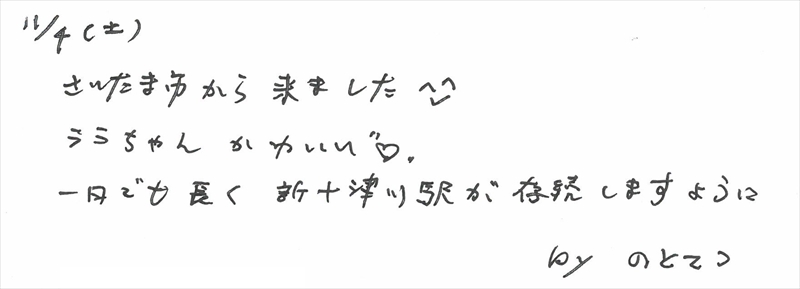 11/4(土)
さいたま市から来ました^^
ララちゃんかわいい♡.
一日でも長く新十津川駅が存続しますように
by のとてつ